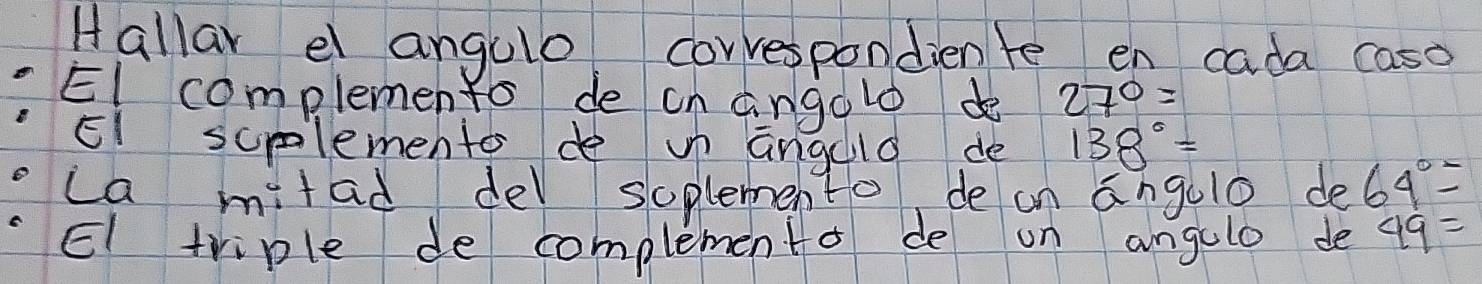 Hallar el angulo correspondiente en cada caso
• El complemento de un angulo de 27° =
• El suplemento de un ángulo de 138° =
• La mitad del suplemento de un ángulo de 64° =
• El triple de complemento de un angulo de 49 =